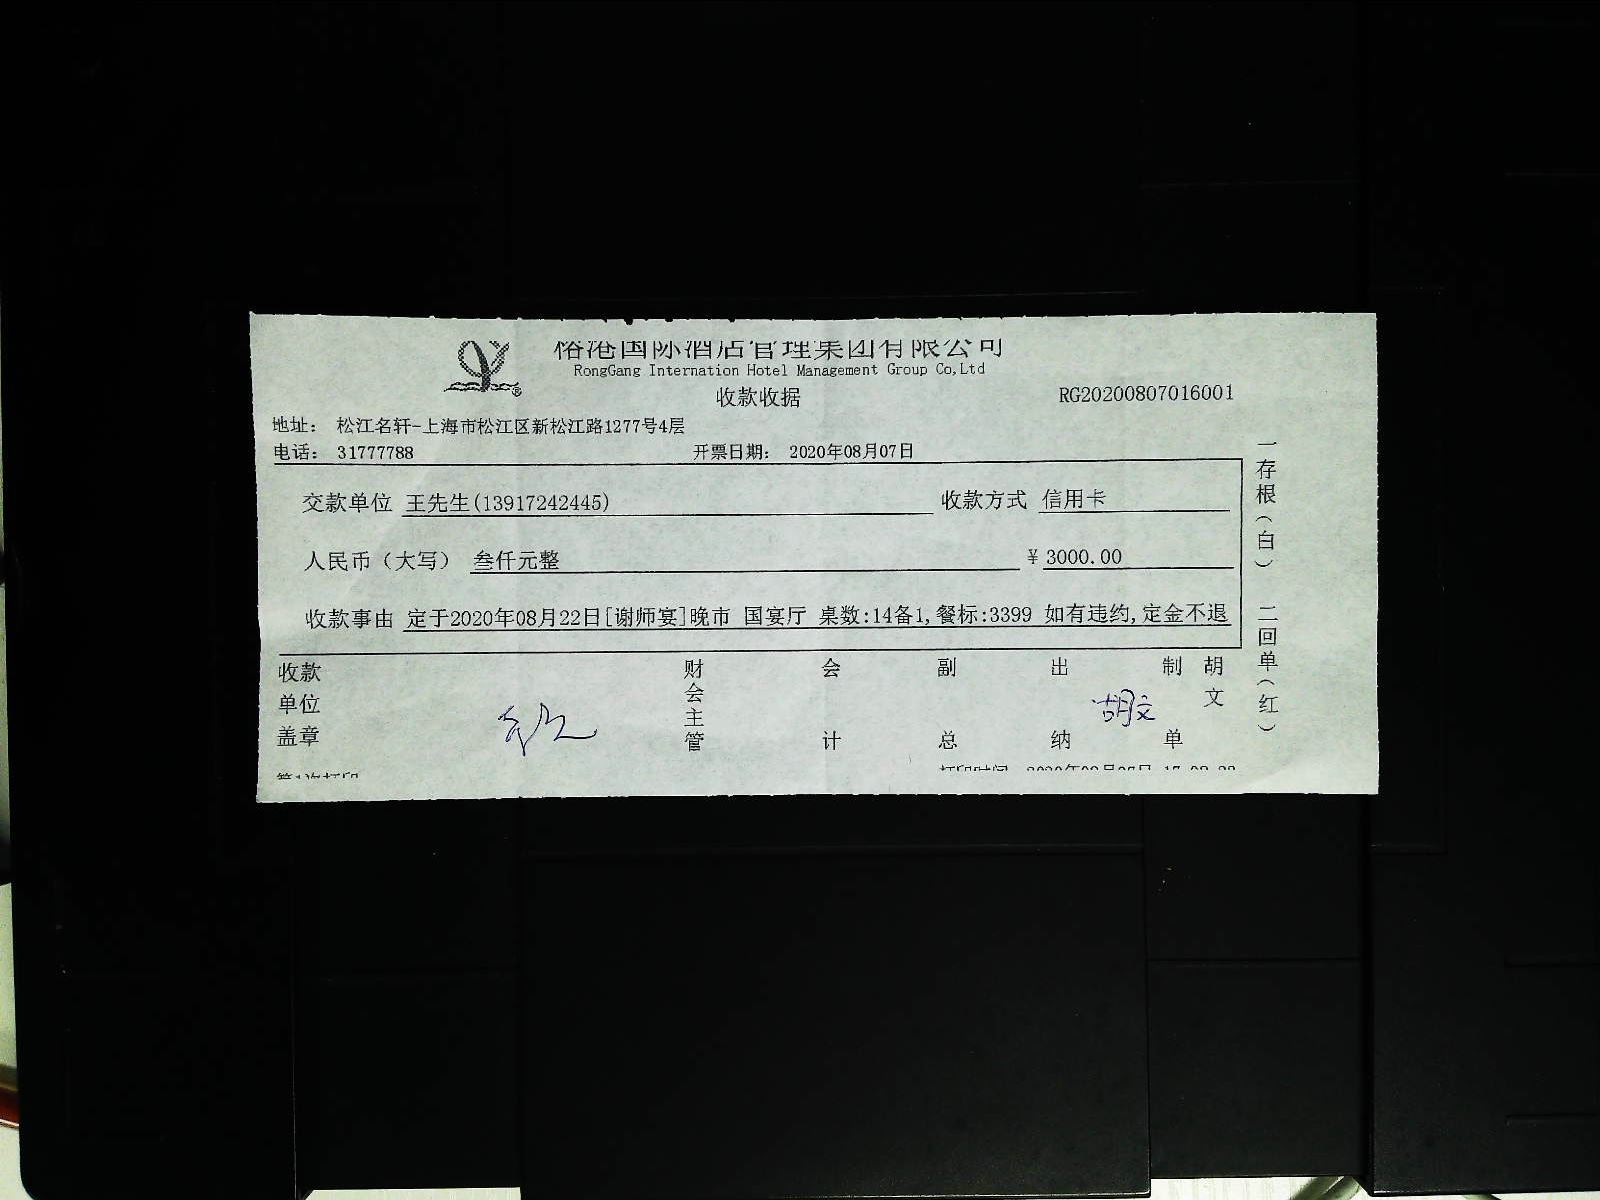 国际酒店管理集团有限公司
RongGang Internation Hotel Management Group Co,Ltd
收款收据
RG20200807016001
地址: 松江名轩-上海市松江区新松江路1277号4层
电话: 31777788 开票日期: 2020年08月07日
交款单位 王先生(13917242445) 收款方式 信用卡
人民币（大写） 叁仟元整 ¥3000.00
收款事由 定于2020年08月22日[谢师宴]晚市 国宴厅 桌数:14备1,餐标:3399 如有违约,定金不退
收款单位盖章
财会主管
会计
副总
出纳
胡文
制单
胡文
一存根（白） 二回单（红）